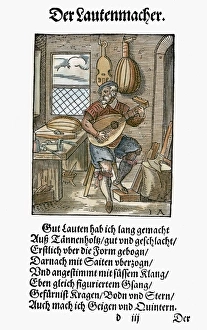 Der Lautenmacher.
Gut Lauten hab ich lang gemacht
Auß Tännenholtz/gut und geschlacht/
Erstlich vber die Form gebogn/
Darnach mit Saiten vberzogn/
Vnd angestimmt mit süssem Klang/
Eben gleich figuriertem Gsang/
Gefürnist Kragen/Bodn vnd Stern/
Auch mach ich Geigen vnd Quintern.
d iij Der